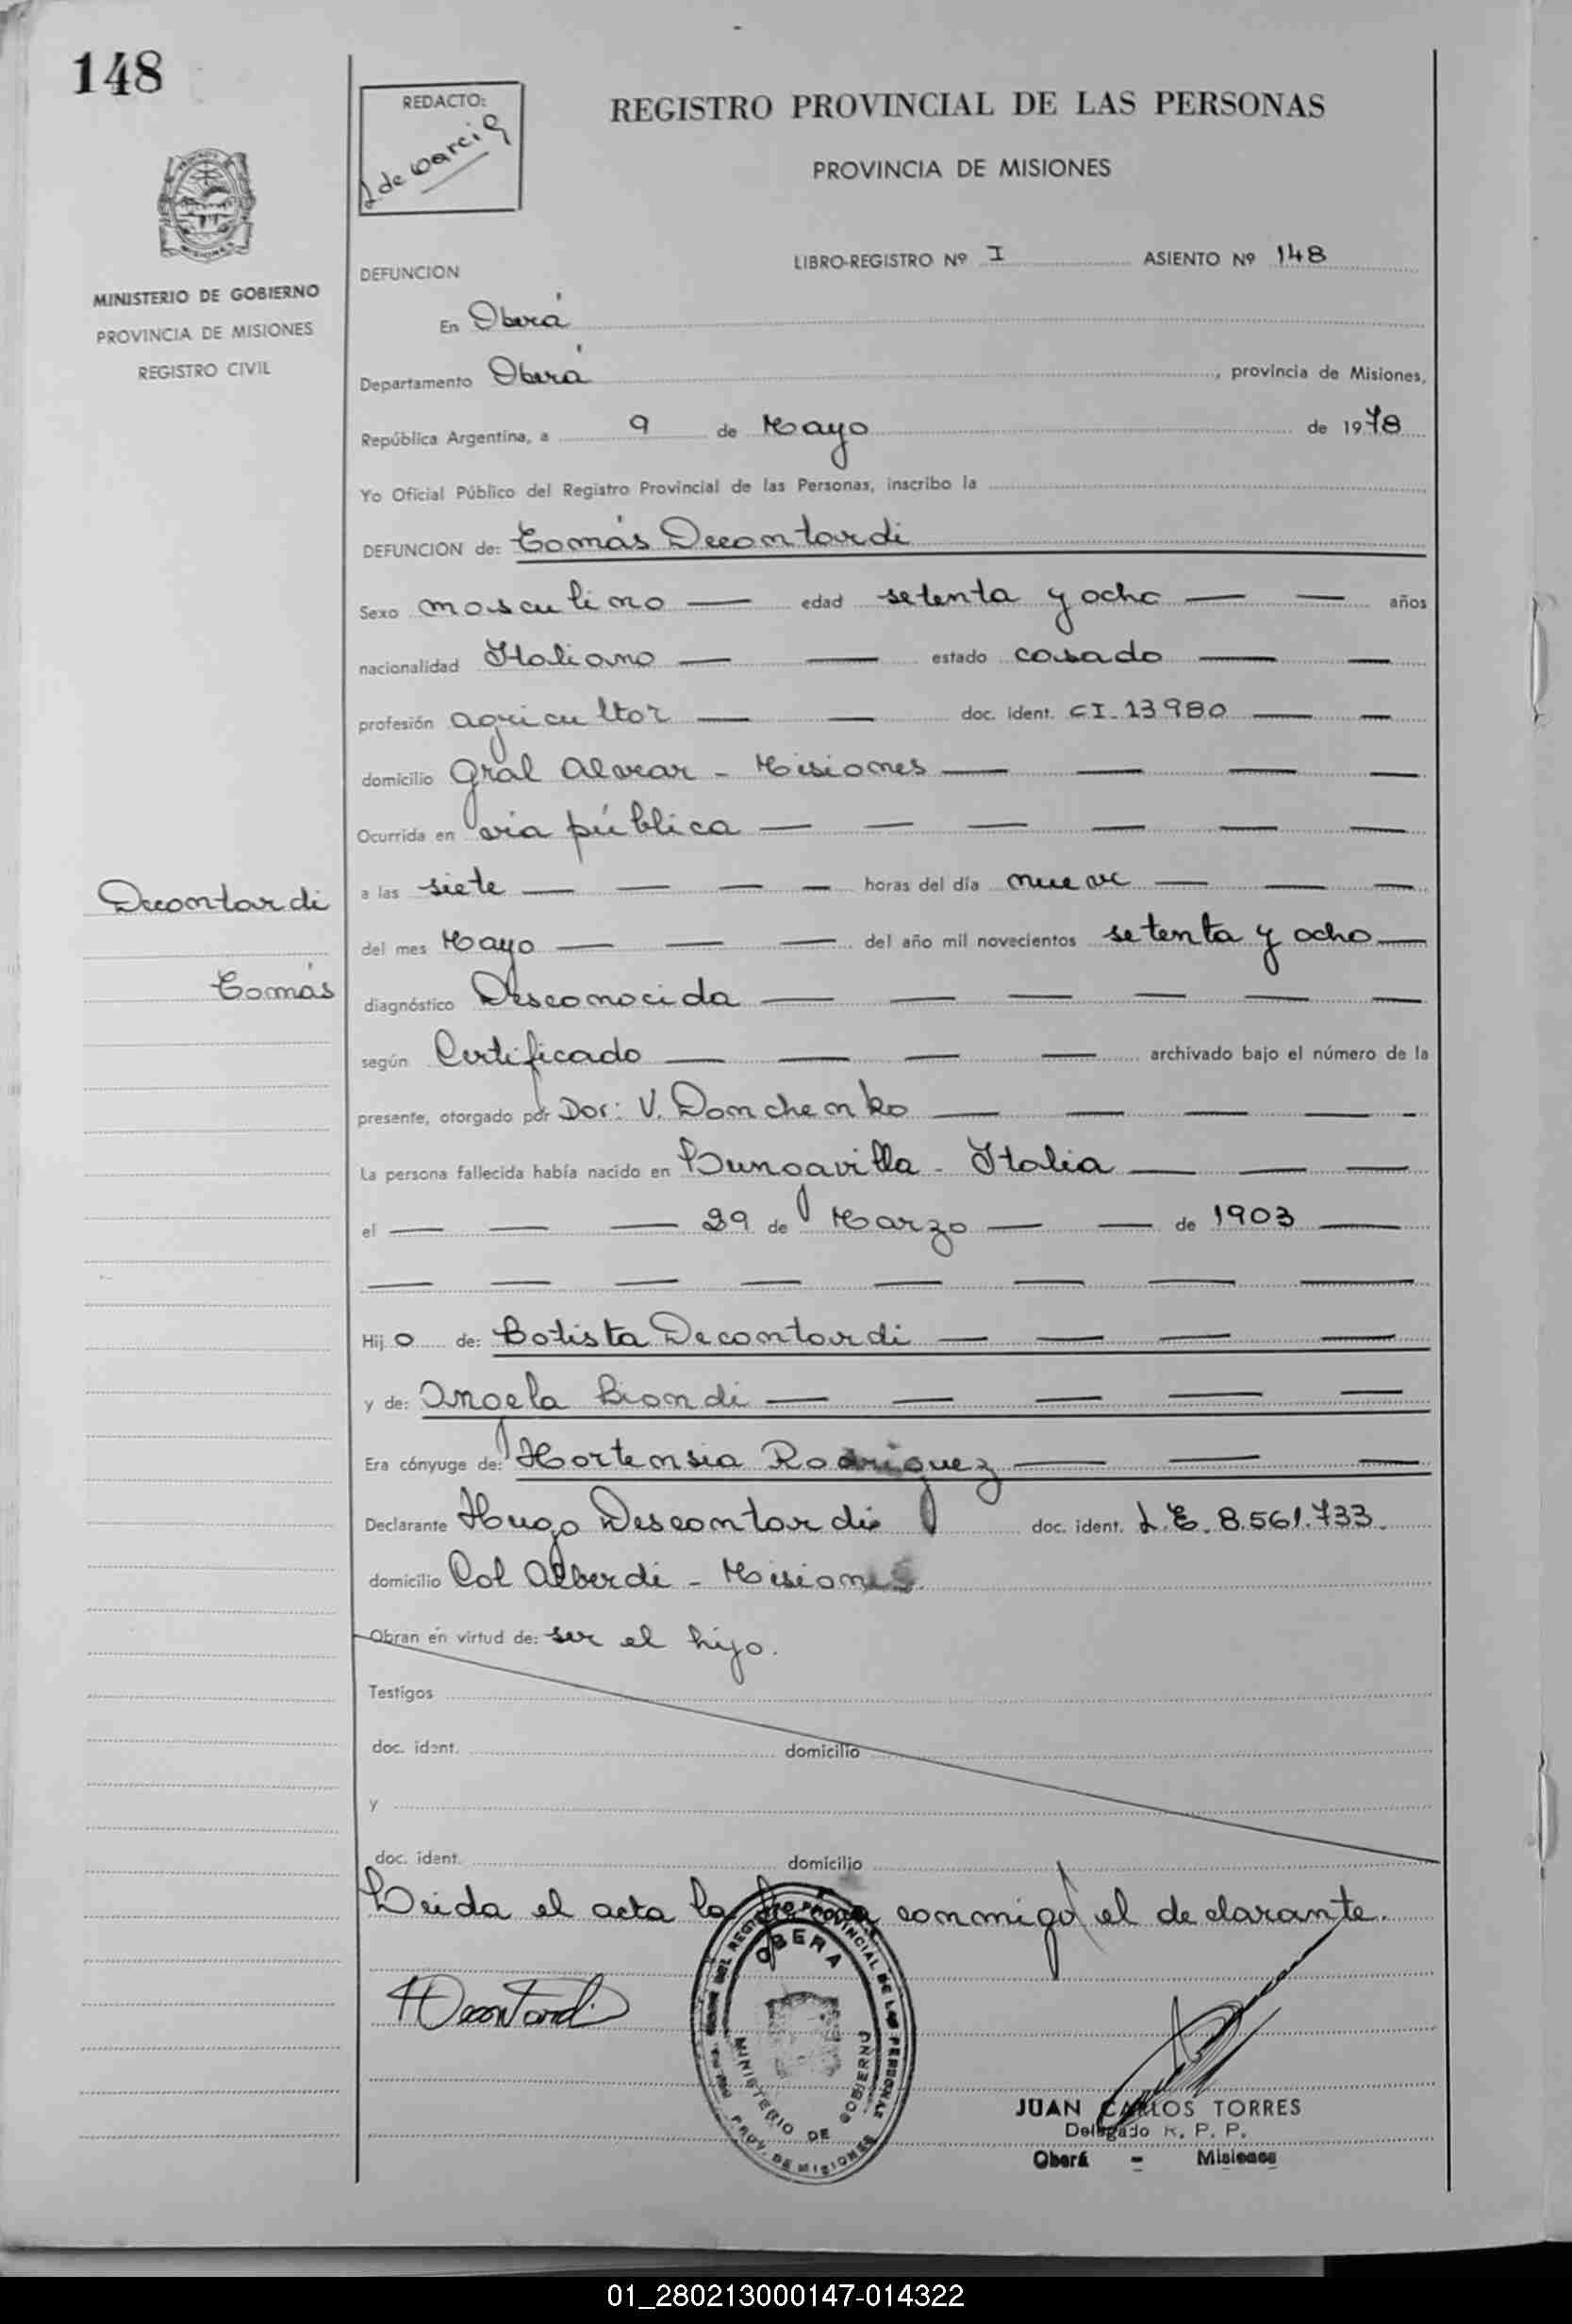 148
REDACTO:
de Garcia
REGISTRO PROVINCIAL DE LAS PERSONAS
PROVINCIA DE MISIONES
MISIONES
MINISTERIO DE GOBIERNO
PROVINCIA DE MISIONES
REGISTRO CIVIL
LIBRO-REGISTRO Nº I ASIENTO Nº 148
DEFUNCION
En Oberá
Departamento Oberá, provincia de Misiones,
República Argentina, a 9 de Mayo de 1978
Yo Oficial Público del Registro Provincial de las Personas, inscribo la
DEFUNCION de: Tomás Decontardi
Sexo masculino — edad setenta y ocho — — años
nacionalidad Italiano — — estado casado — —
profesión agricultor — — doc. ident. CI. 13980 — —
domicilio Gral Alvear - Misiones — — — —
Ocurrida en via pública — — — — — —
a las siete — — — — horas del día nueve — — —
del mes Mayo — — — del año mil novecientos setenta y ocho —
diagnóstico Desconocida — — — — — —
según Certificado — — — — archivado bajo el número de la
presente, otorgado por Dor: V. Donchenko — — — — -
La persona fallecida había nacido en Bungavilla - Italia — — —
el — — — 29 de Marzo — — de 1903 —
— — — — — — — —
Hijo de: Batista Decontardi — — — —
y de: Angela Biondi — — — — —
Era cónyuge de: Hortensia Rodriguez — — —
Declarante Hugo Descontardi doc. ident. L.E. 8.561.733.
domicilio Col Alberdi - Misiones.
Obran en virtud de: ser el hijo.
Testigos
doc. ident. domicilio
y
doc. ident. domicilio
Leida el acta la firma conmigo el declarante.
Decontardi
Tomás
HDecontardi
REGISTRO PROVINCIAL DE LAS PERSONAS
OBERA
MINISTERIO DE GOBIERNO
PROV. DE MISIONES
JUAN CARLOS TORRES
Delegado R. P. P.
Oberá - Misiones
01_280213000147-014322